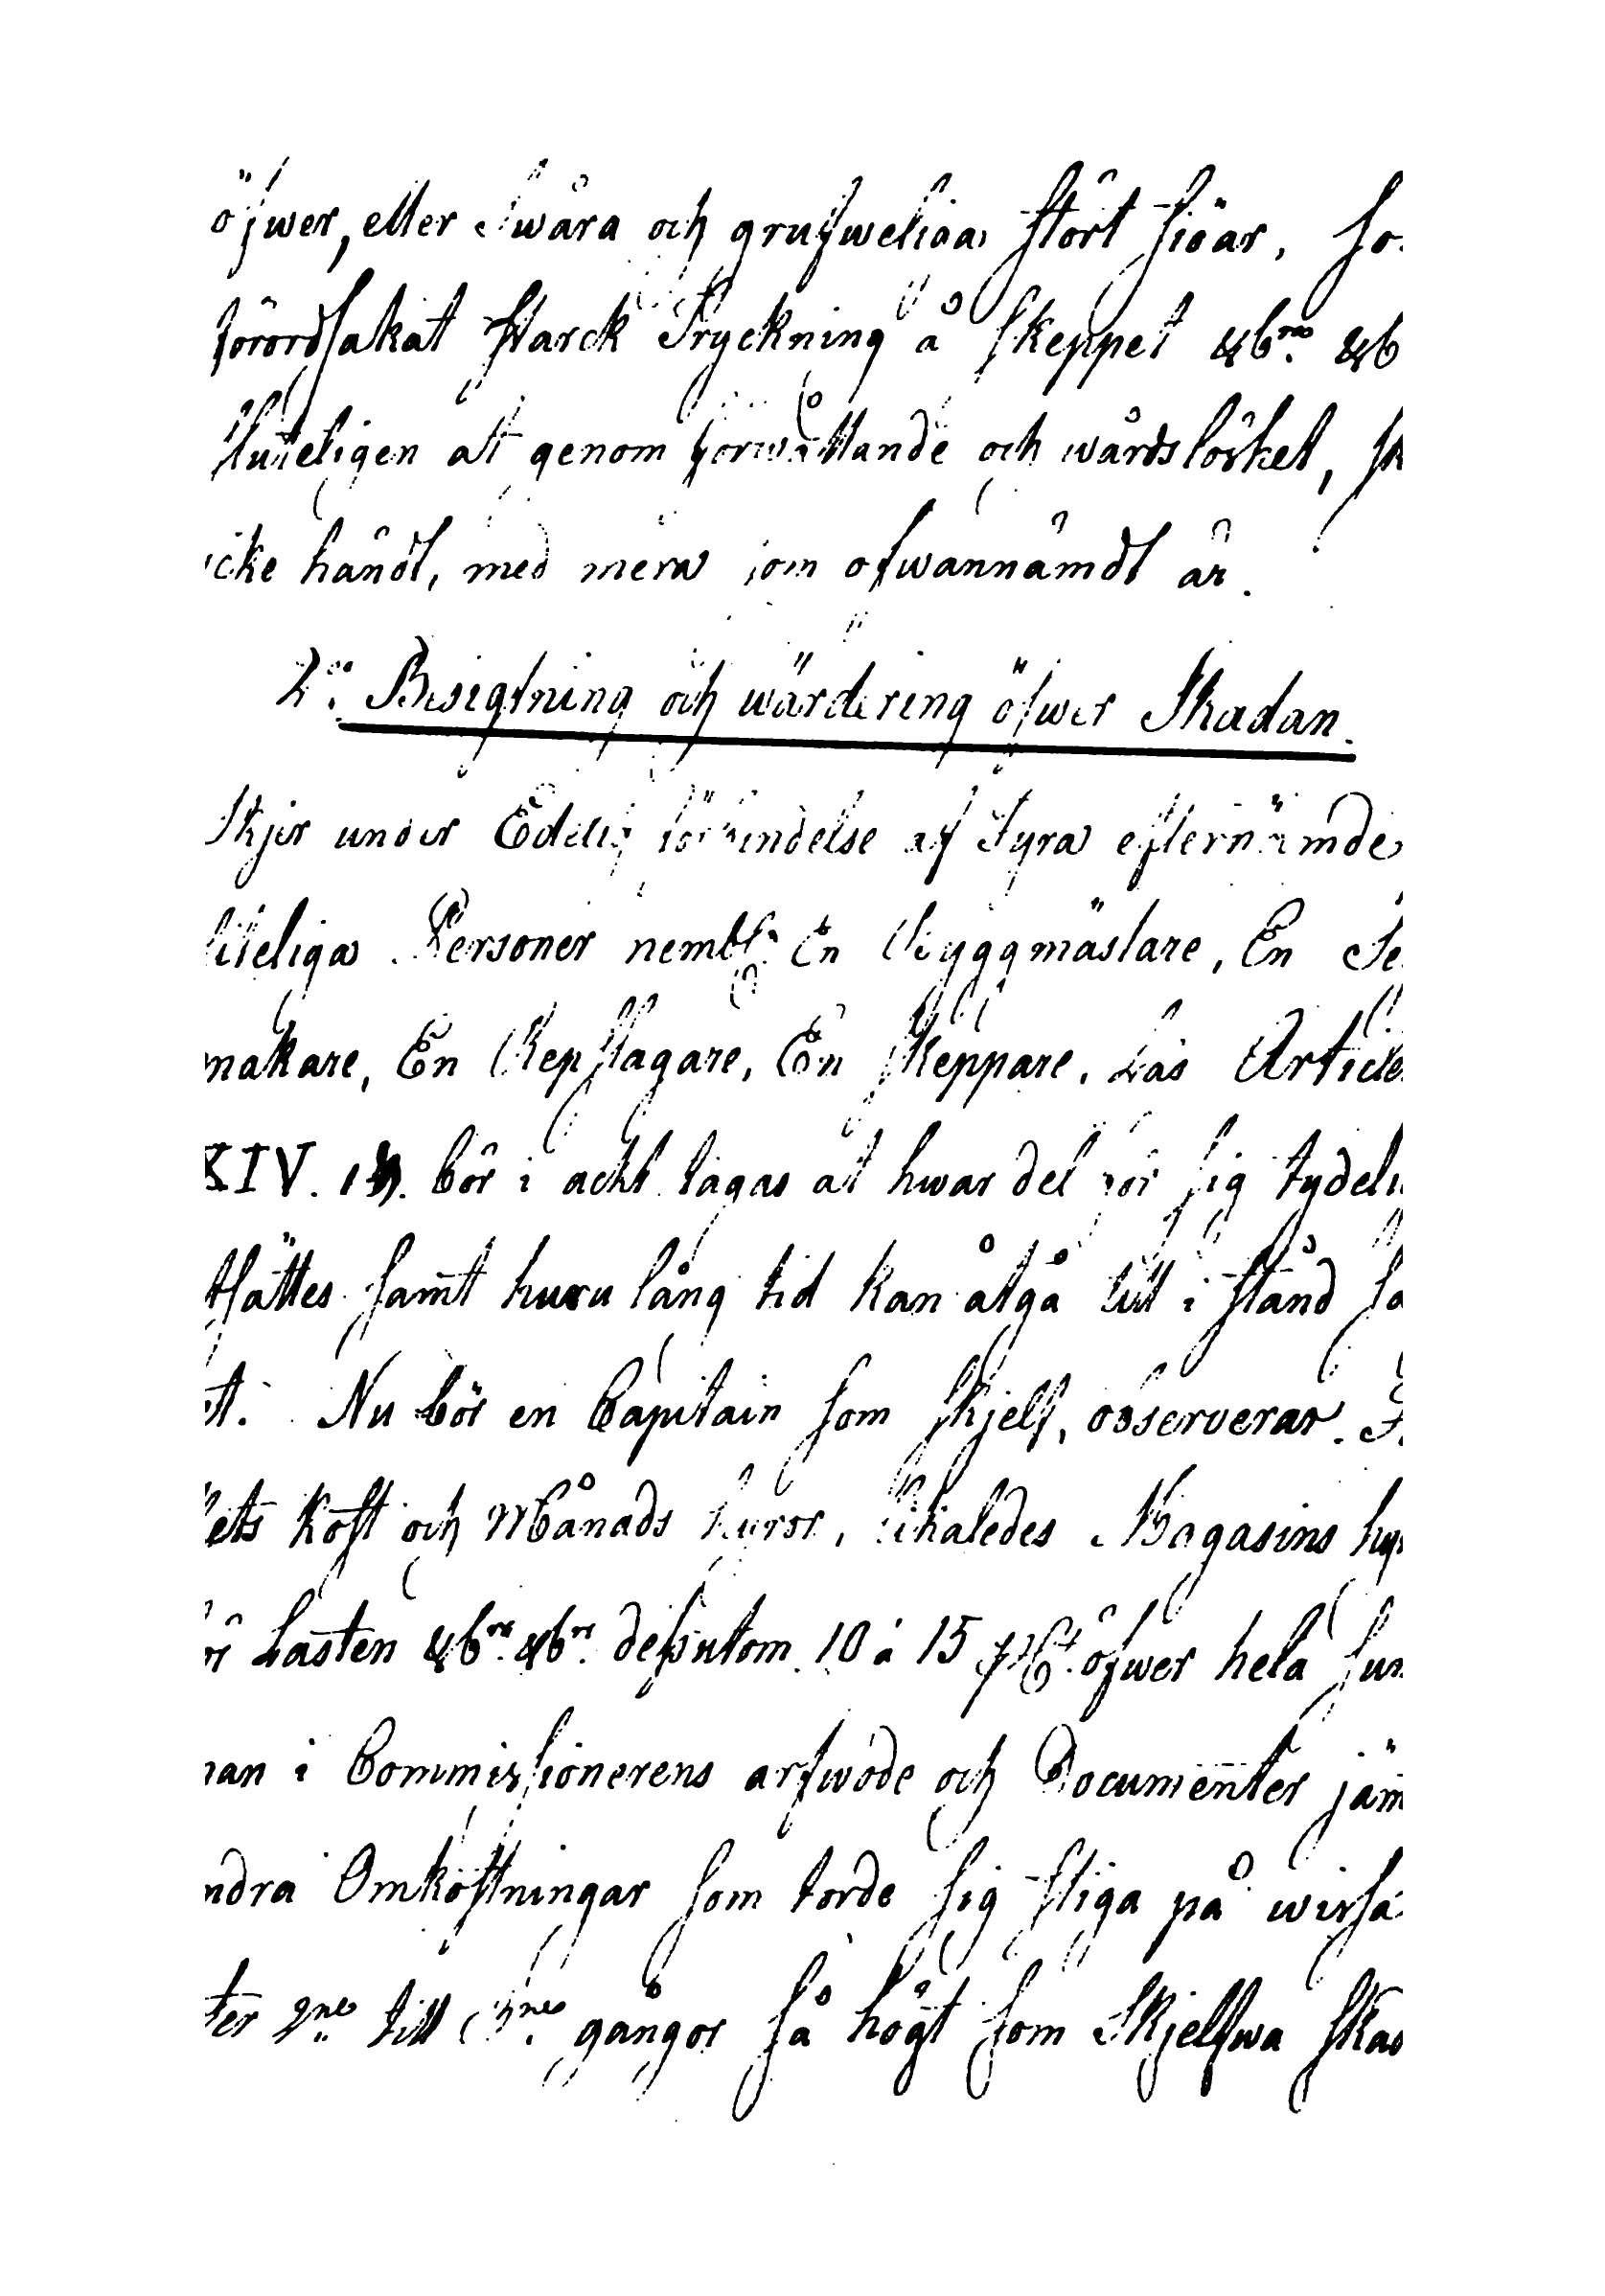 öfwer, eller swåra och grufweliga stört siöar, so
förordsakat starck Tryckning å skeppet &c:ra &c
sluteligen at genom förwållande och wårdslösket, 
icke händt, med mera som ofwannämdt är.
2:o Besigtning och wärdering öfwer Skadan.
Skjer under Edelig förbindelse af Fyra efternämde
liteliga Personer nembl: En Byggmästare, En Se
makare, En Repslagare, En skeppare. Läs Article
XIV. bör i acht tagas at hwar del för sig tydeli
tsättes samt huru lång tid kan åtgå till i stånd sä
et. Nu bör en Capitain som skjelf, observera.
kets kost och Månads hyror, likaledes Magasins hyr
ör Lasten &c:ra &c:ra dessutom 10 à 15 pCt. öfwer hela sum
man i Commissionerens arfwode och Documenter jäm
ndra Omkostningar som torde sig stiga på wissa
ter 2:ne till 3:ne gångor så högt som Skjelfwa skad